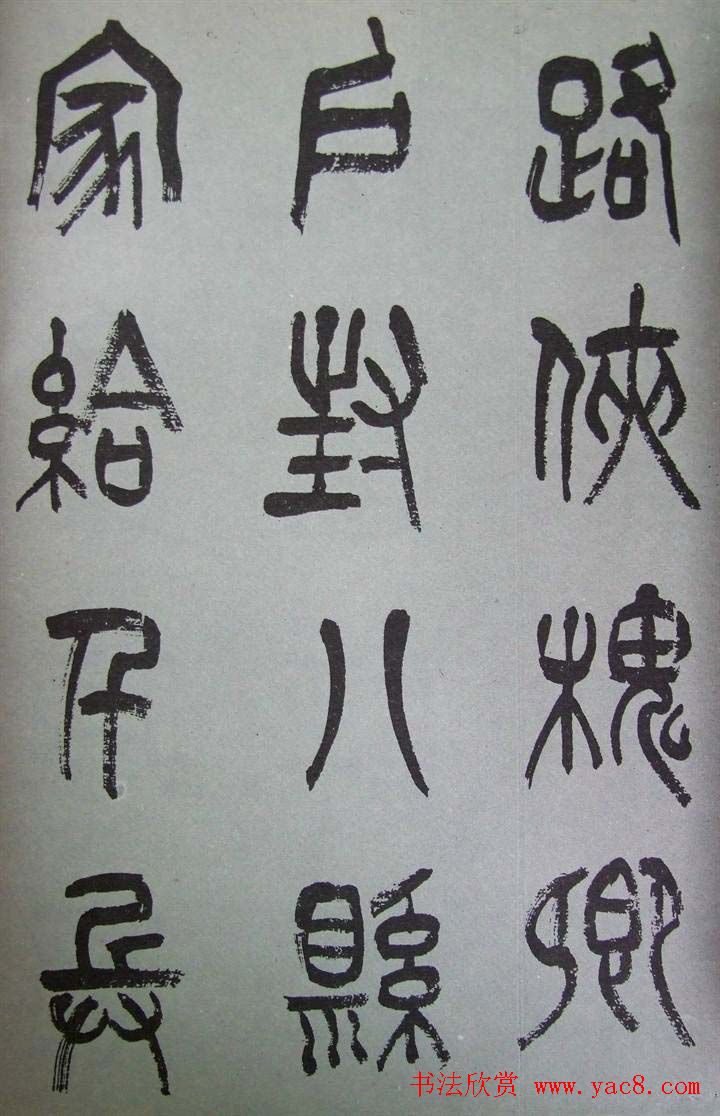 路俠槐卿
户封八縣
家給千兵
书法欣赏 www.yac8.com